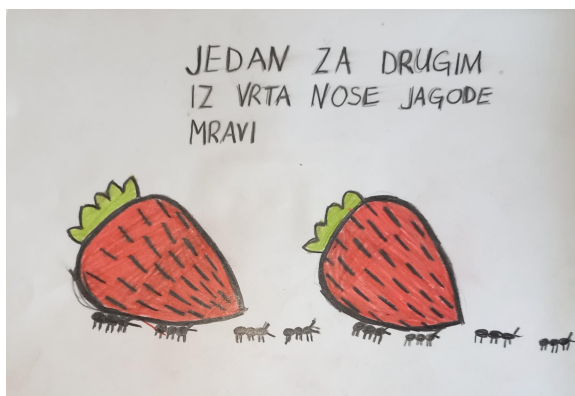 JEDAN ZA DRUGIM
IZ VRTA NOSE JAGODE
MRAVI